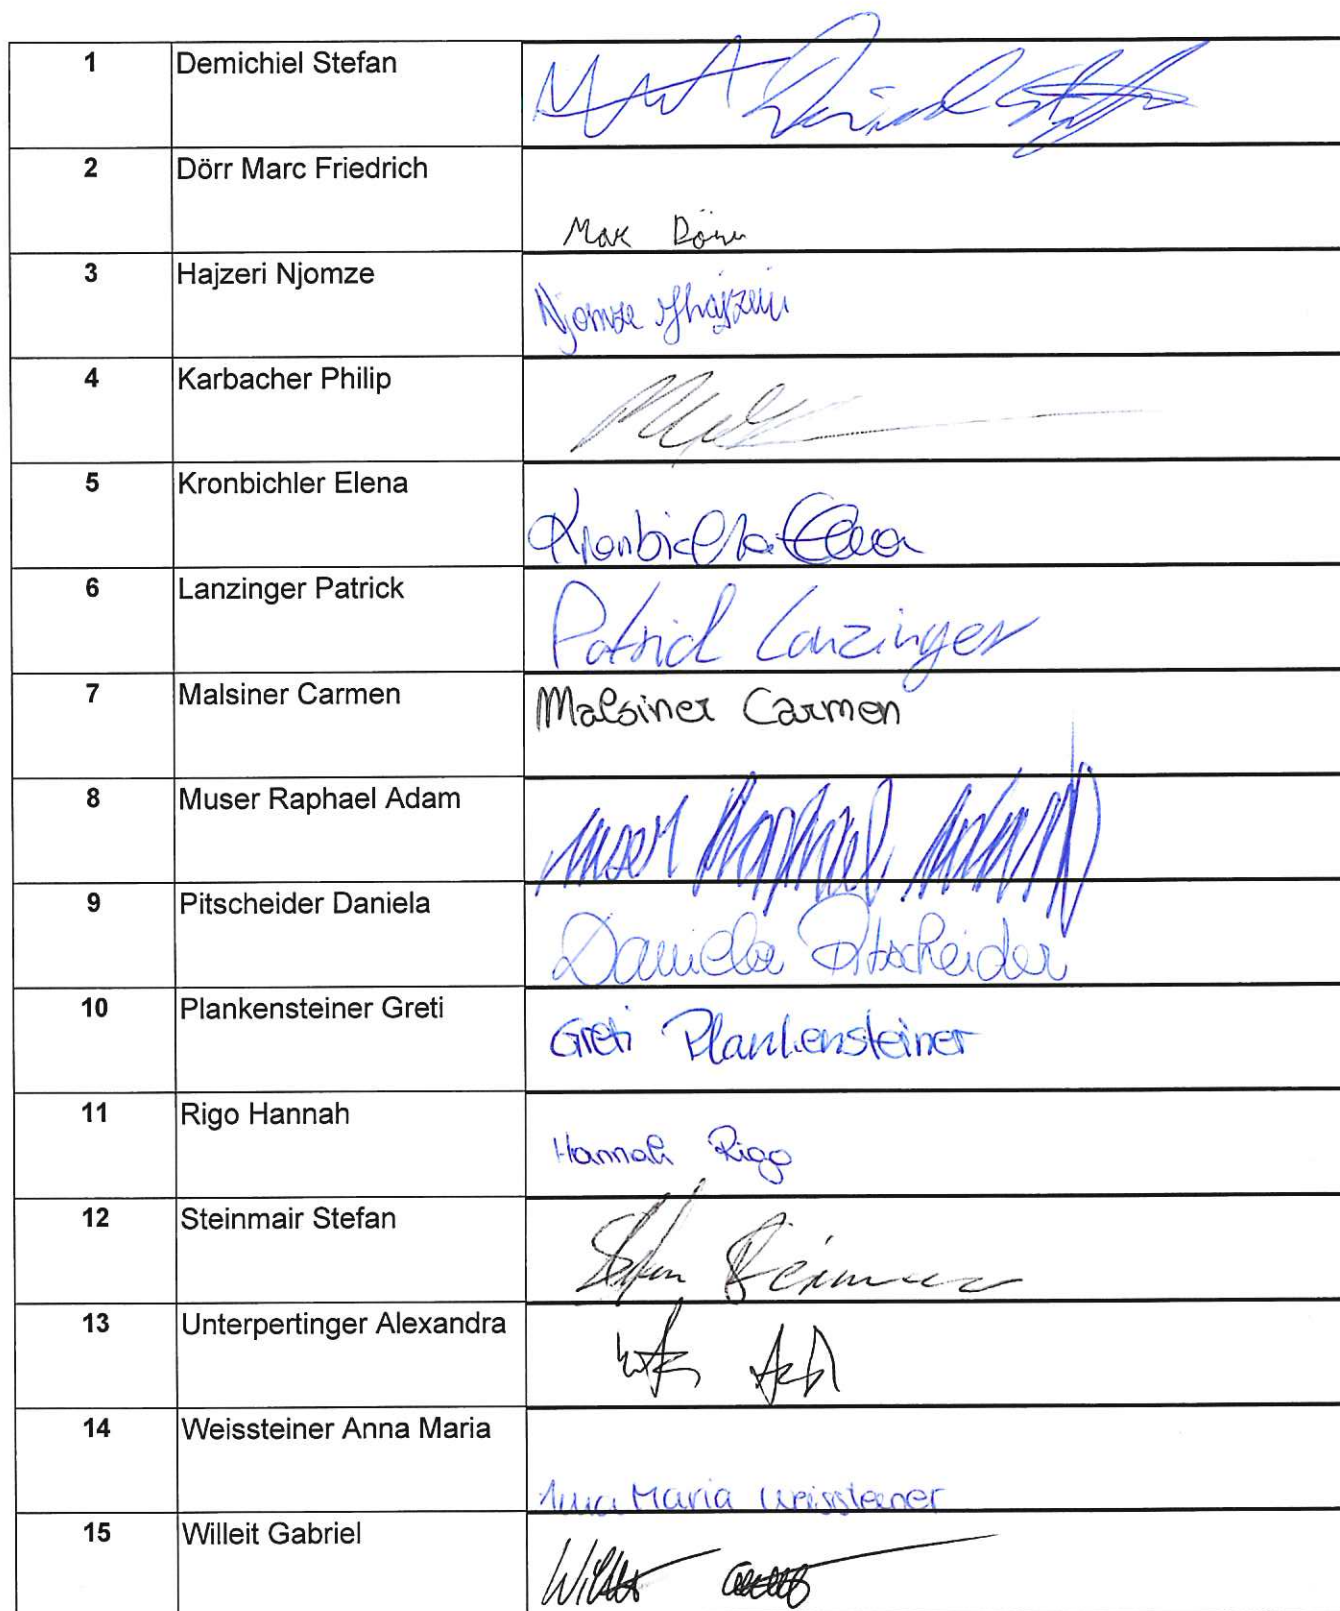 1 Demichiel Stefan
2 Dörr Marc Friedrich Marc Dörr
3 Hajzeri Njomze Njomze Hajzeri
4 Karbacher Philip
5 Kronbichler Elena Kronbichler Elena
6 Lanzinger Patrick Patrick Lanzinger
7 Malsiner Carmen Malsiner Carmen
8 Muser Raphael Adam Muser Raphael Adam
9 Pitscheider Daniela Daniela Pitscheider
10 Plankensteiner Greti Greti Plankensteiner
11 Rigo Hannah Hannah Rigo
12 Steinmair Stefan Stefan Steinmair
13 Unterpertinger Alexandra
14 Weissteiner Anna Maria Anna Maria Weissteiner
15 Willeit Gabriel